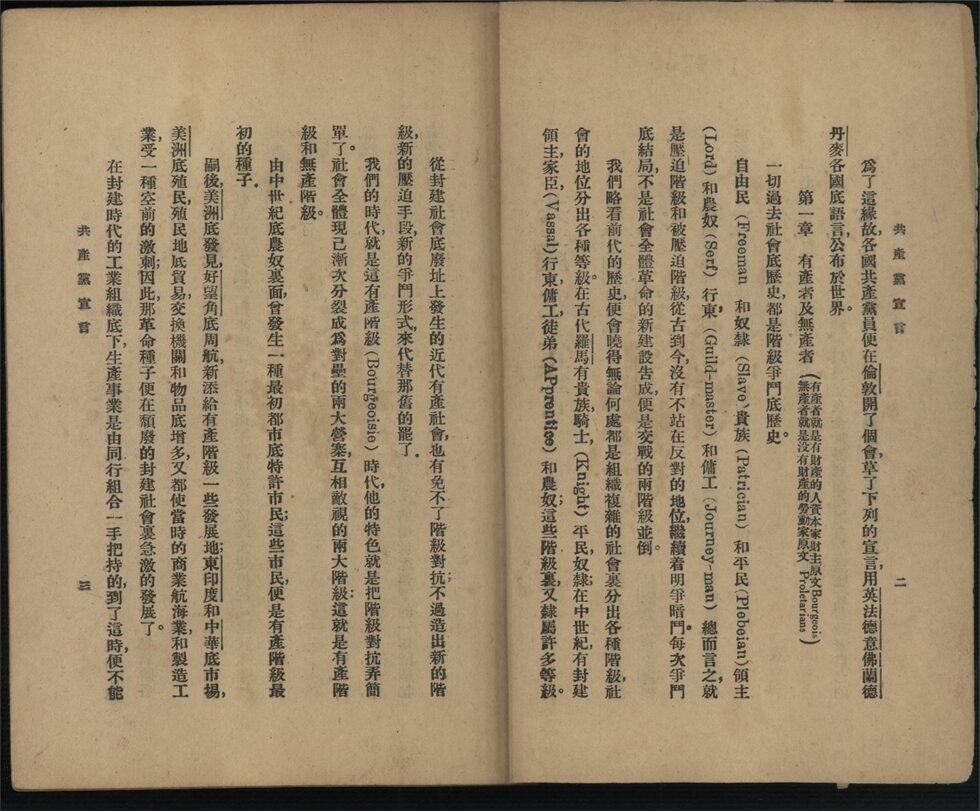 共產黨宣言
二
爲了這緣故各國共產黨員便在倫敦開了個會，草了下列的宣言，用英法德意佛蘭德
丹麥各國底語言，公布於世界。
第一章　有產者及無產者（有產者就是有財產的人資本家財主原文Bourgeois）
無產者就是沒有財產的勞動家原文 Proletarians）
一切過去社會底歷史，都是階級爭鬥底歷史。
自由民（Freeman　和奴隸（Slave）貴族（Patrician）和平民（Plebeian）領主
（Lord）和農奴（Serf）行東，（Guild-master）和傭工（Journey-man）總而言之，就
是壓迫階級和被壓迫階級，從古到今，沒有不站在反對的地位，繼續着明爭暗鬥。每次爭鬥
底結局，不是社會全體革命的新建設告成，便是交戰的兩階級並倒。
我們略看前代的歷史，便會曉得無論何處都是組織複雜的社會裏分出各種階級，社
會的地位分出各種等級。在古代羅馬有貴族，騎士，（Knight）平民，奴隸；在中世紀，有封建
領主，家臣，（Vassal）行東，傭工，徒弟（APprentice）和農奴；這些階級裏，又隸屬許多等級。
從封建社會底廢址上發生的近代有產社會，也有免不了階級對抗；不過造出新的階
級，新的壓迫手段，新的爭鬥形式，來代替那舊的罷了。
我們的時代，就是這有產階級（Bourgeoisie）時代，他的特色就是把階級對抗弄簡
單了。社會全體現已漸次分裂成爲對壘的兩大營寨，互相敵視的兩大階級；這就是有產階
級和無產階級。
由中世紀底農奴裏面，曾發生一種最初都市底特許市民；這些市民，便是有產階級最
初的種子。
嗣後，美洲底發見，好望角底周航，新添給有產階級一些發展地；東印度和中華底市場，
美洲底殖民，殖民地底貿易，交換機關和物品底增多，又都使當時的商業，航海業，和製造工
業，受一種空前的激刺；因此那革命種子便在頹廢的封建社會裏急激的發展了。
在封建時代的工業組織底下，生產事業是由同行組合一手把持的，到了這時，便不能
共產黨宣言
三